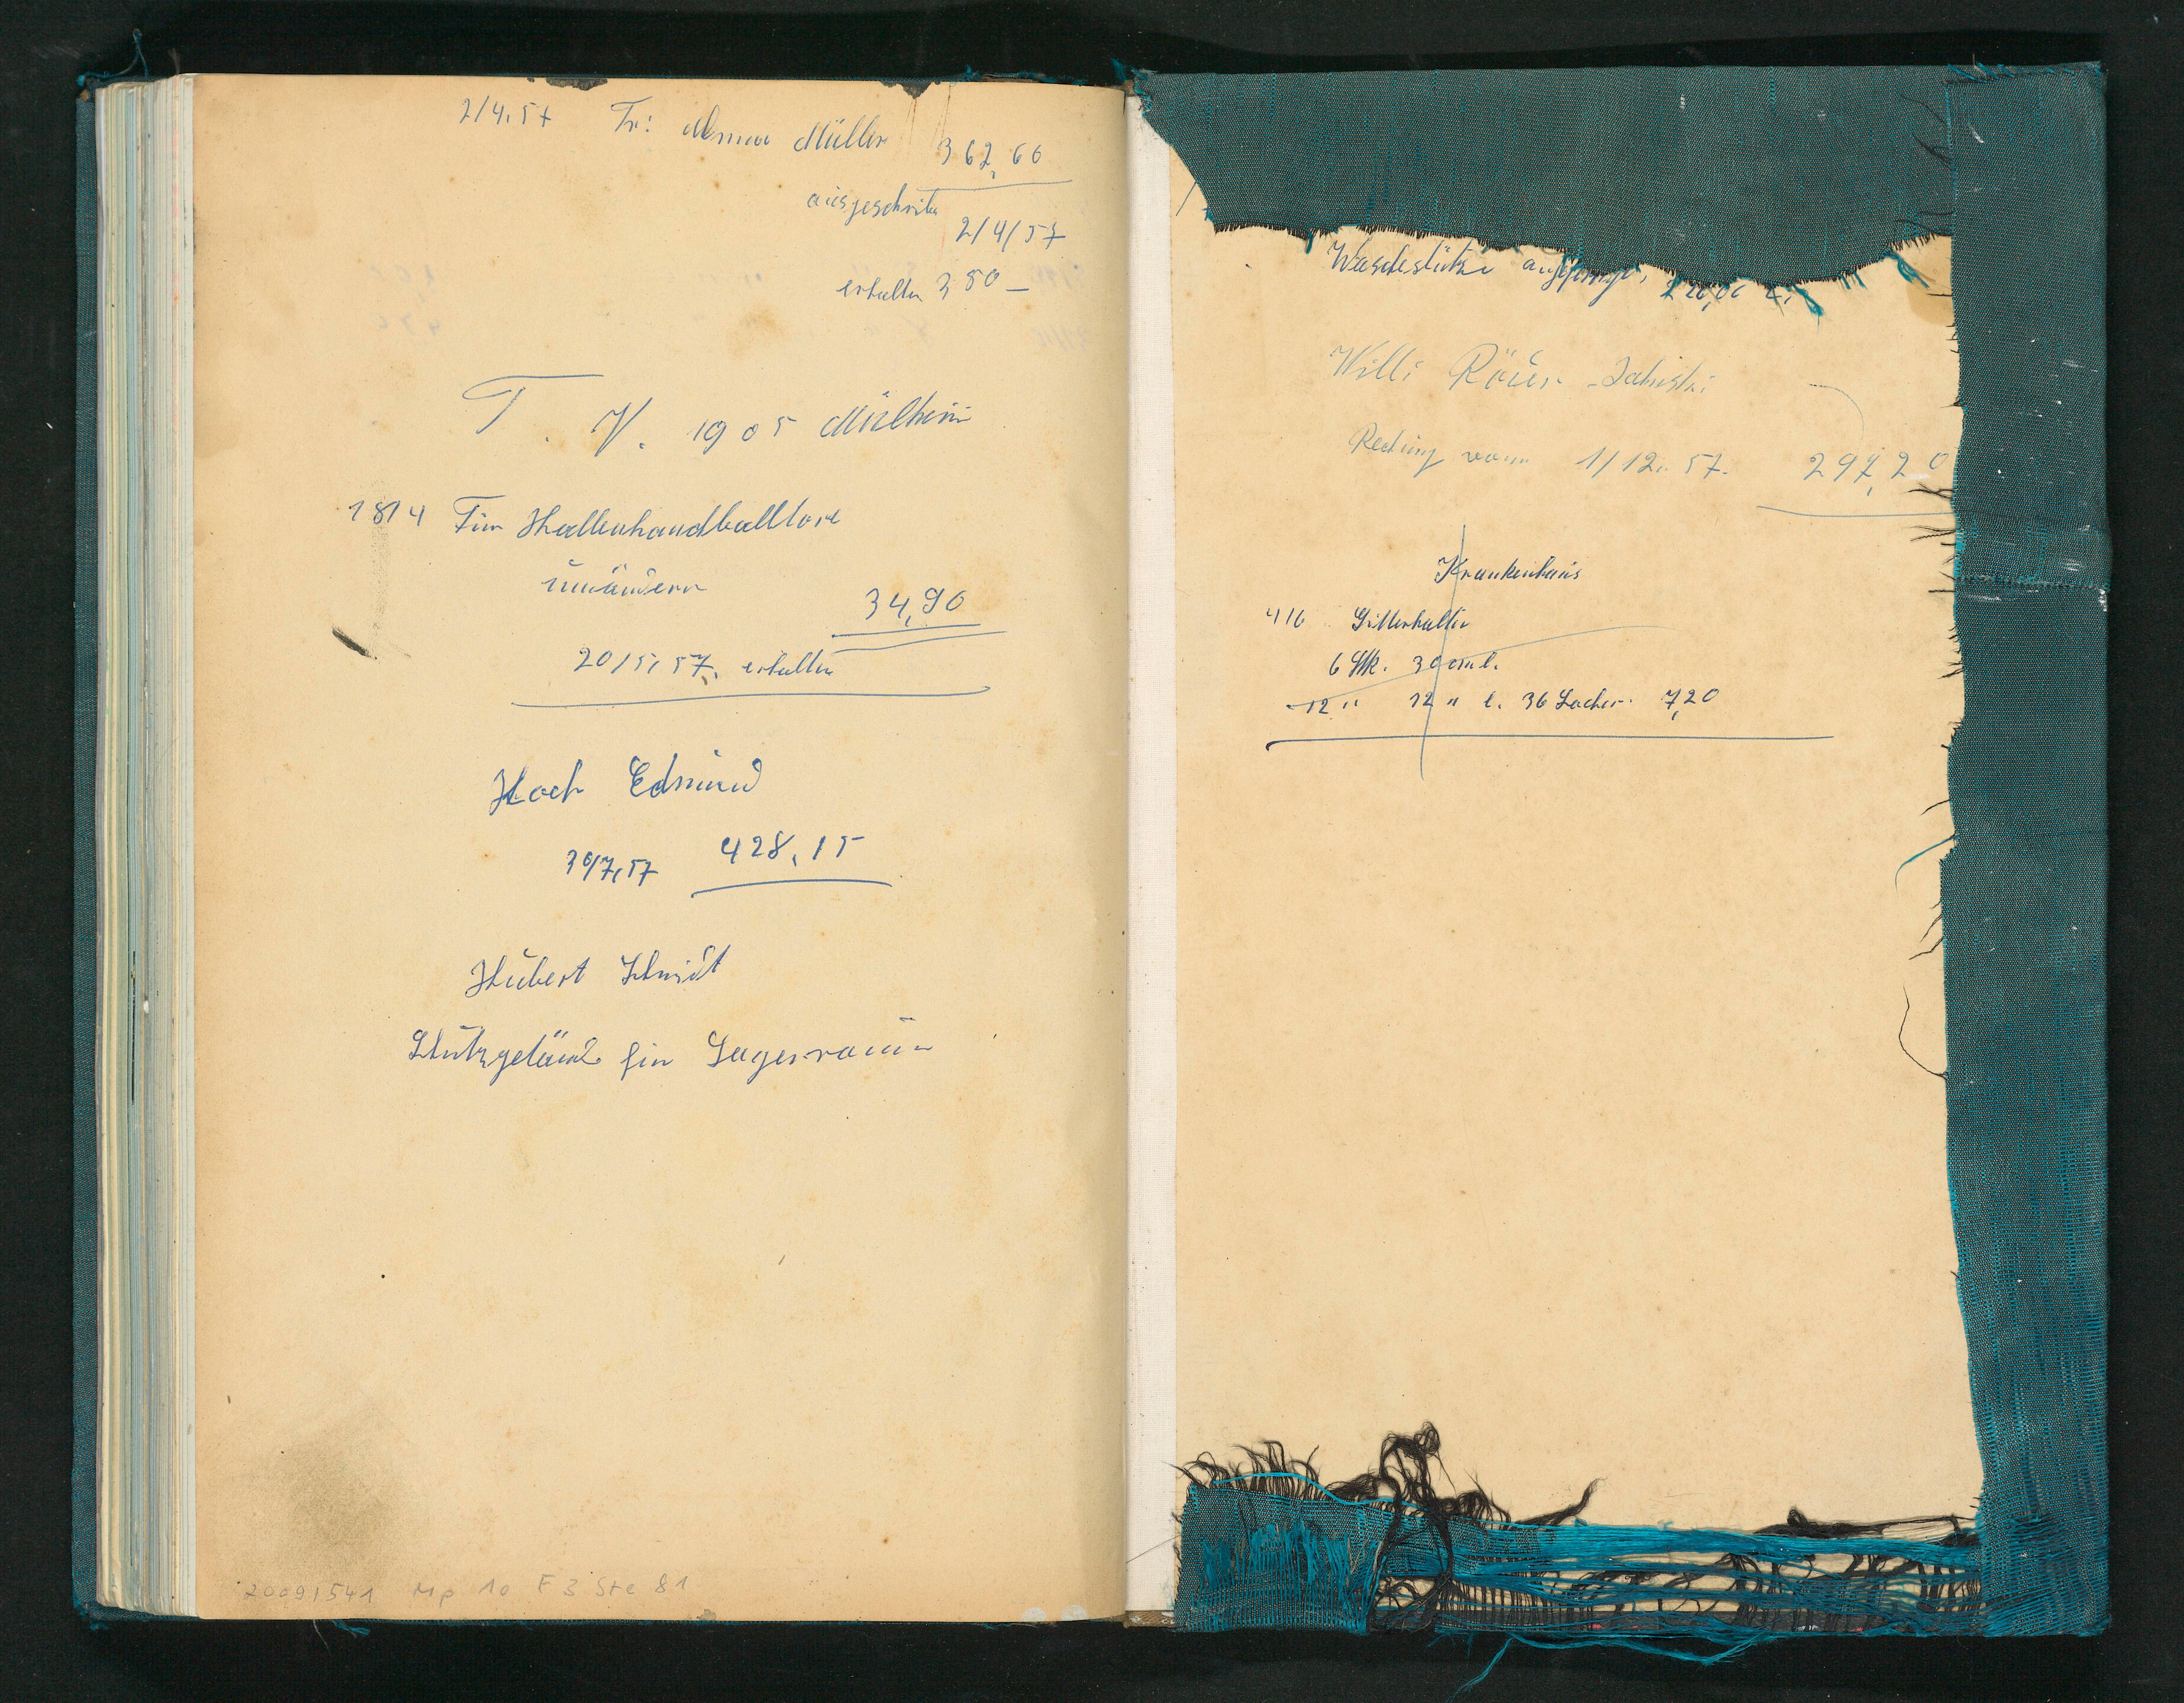 2/4.57 Fr: Anna Müller 362,60
ausgeschrieben
2/4/57
erhalten 380 —
T. V. 1905 Mülheim
18/4 Für Hallenhandballtore
umändern
34,90
20/5.57. erhalten
Hoch Edmund
30/7.57 428,15
Hubert Schmidt
Schutzgeländ. für Lagerraum
20091541 Mp 10 F 3 Ste 81
Wäschestütze
Willi Röder
Rechnung vom 1/12.57. 297,20
Krankenhaus
4/6 Gitterhalter
6 Stk. 30 cm l.
12 " 12 " l. 36 Löcher 7,20